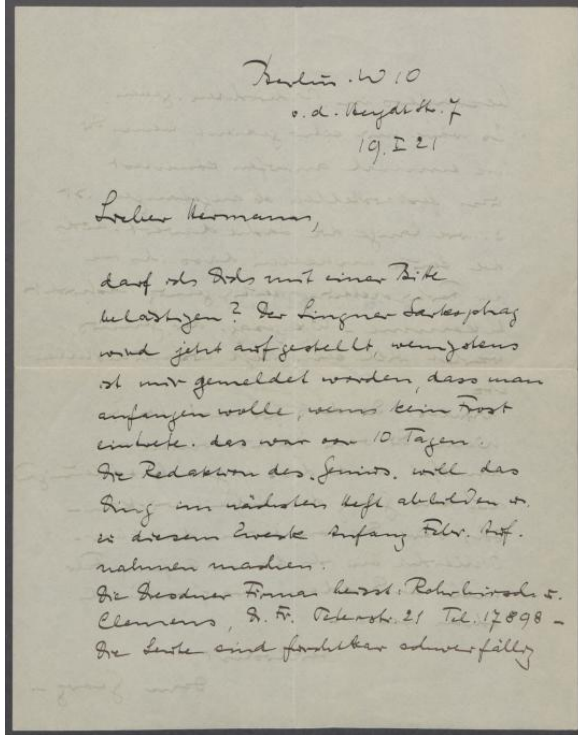 Berlin. W 10
v. d. Heydt Str. 7
19. I 21
Lieber Hermann,
darf ich Dich mit einer Bitte
belästigen? Der Lingner Sarkophag
wird jetzt aufgestellt, wenigstens
ist mir gemeldet worden, dass man
anfangen wolle, wenns kein Frost
eintrete. das war vor 10 Tagen.
Die Redaktion des. Genius. will das
Ding im nächsten Heft abbilden u.
zu diesem Zweck Anfang Febr. Auf.
nahmen machen.
Die Dresdner Firma heisst: Rohrhirsch u.
Clemens, D. Fr. Peterstr. 21 Tel. 17898 –
Die Leute sind furchtbar schwerfällig